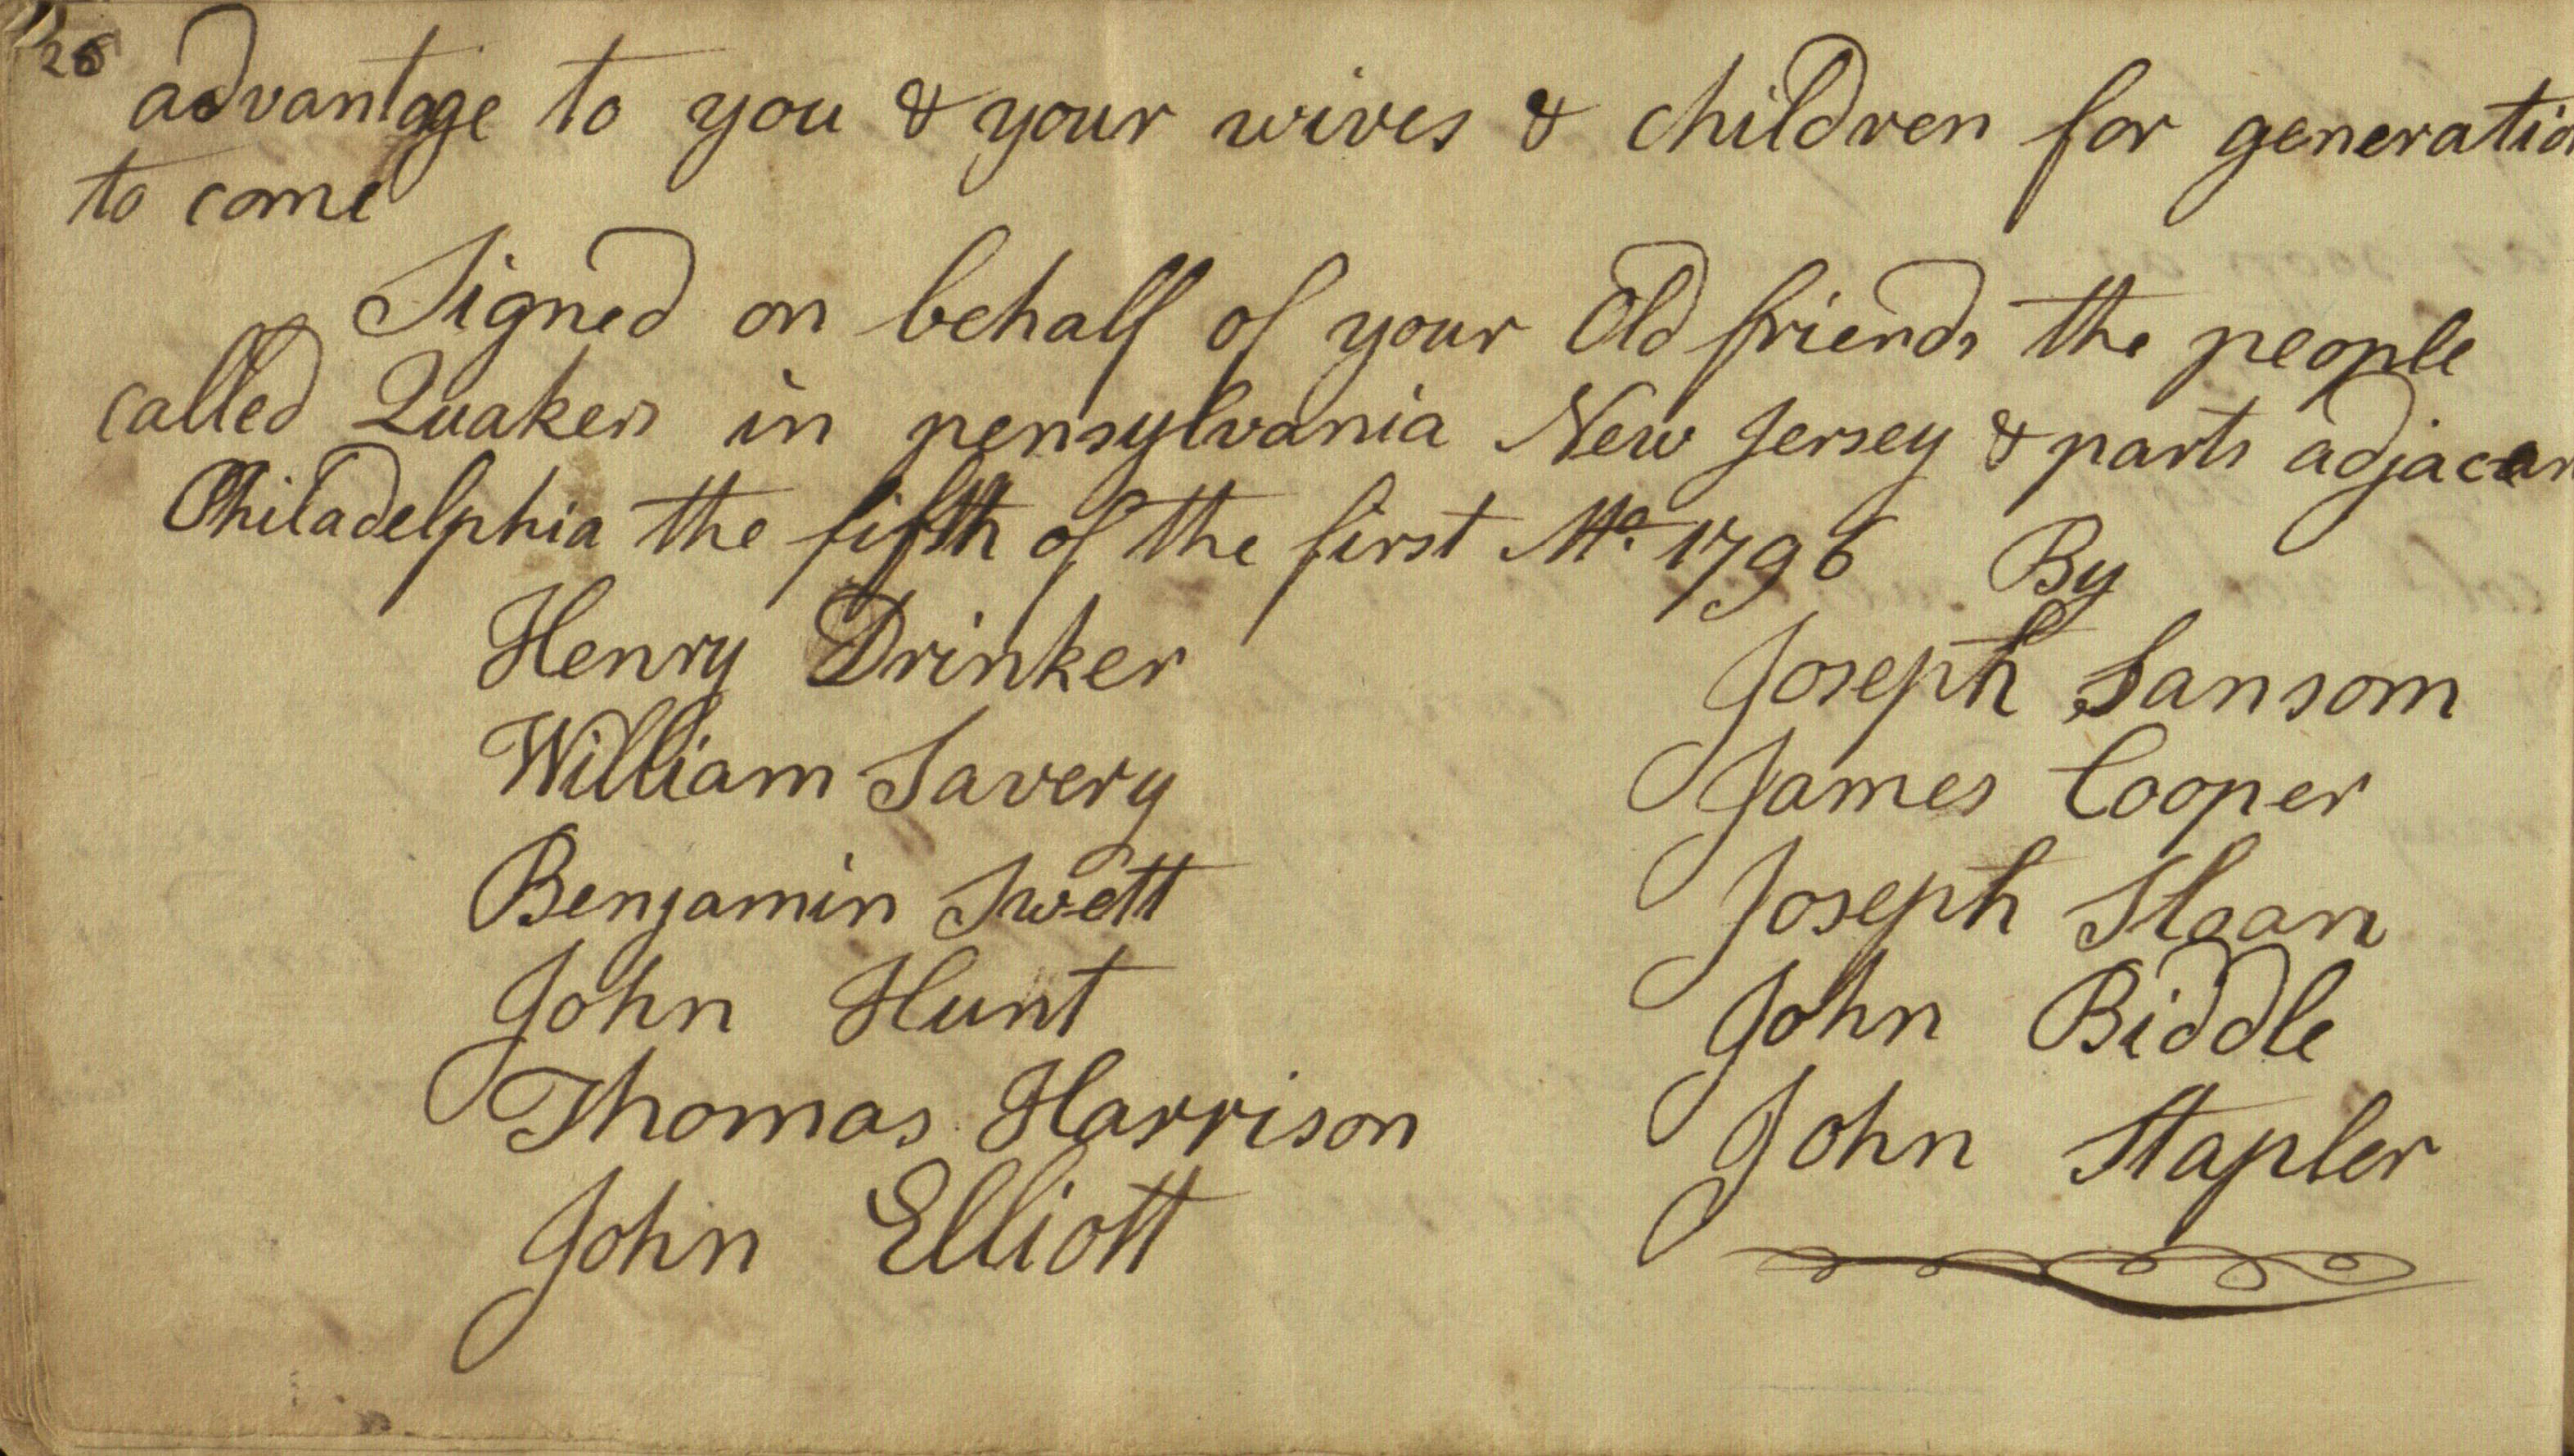 26
advantage to you & your wives & children for generatio
to come
Signed on behalf of your Old friends the people
called Quakers in pensylvania New Jersey & parts adjacen
Philadelphia the fifth of the first Mo. 1796 By
Henry Drinker Joseph Sansom
William Savery James Cooper
Benjamin Swett Joseph Sloan
John Hunt John Biddle
Thomas Harrison John Stapler
John Elliott